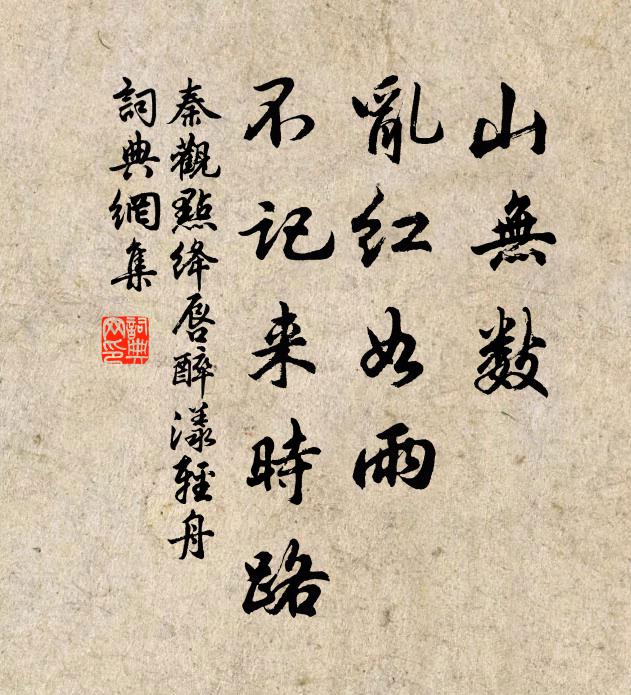 山無數
亂紅如雨
不記来時路
秦觀點绛唇醉漾輕舟
詞典網集
詞典
网印